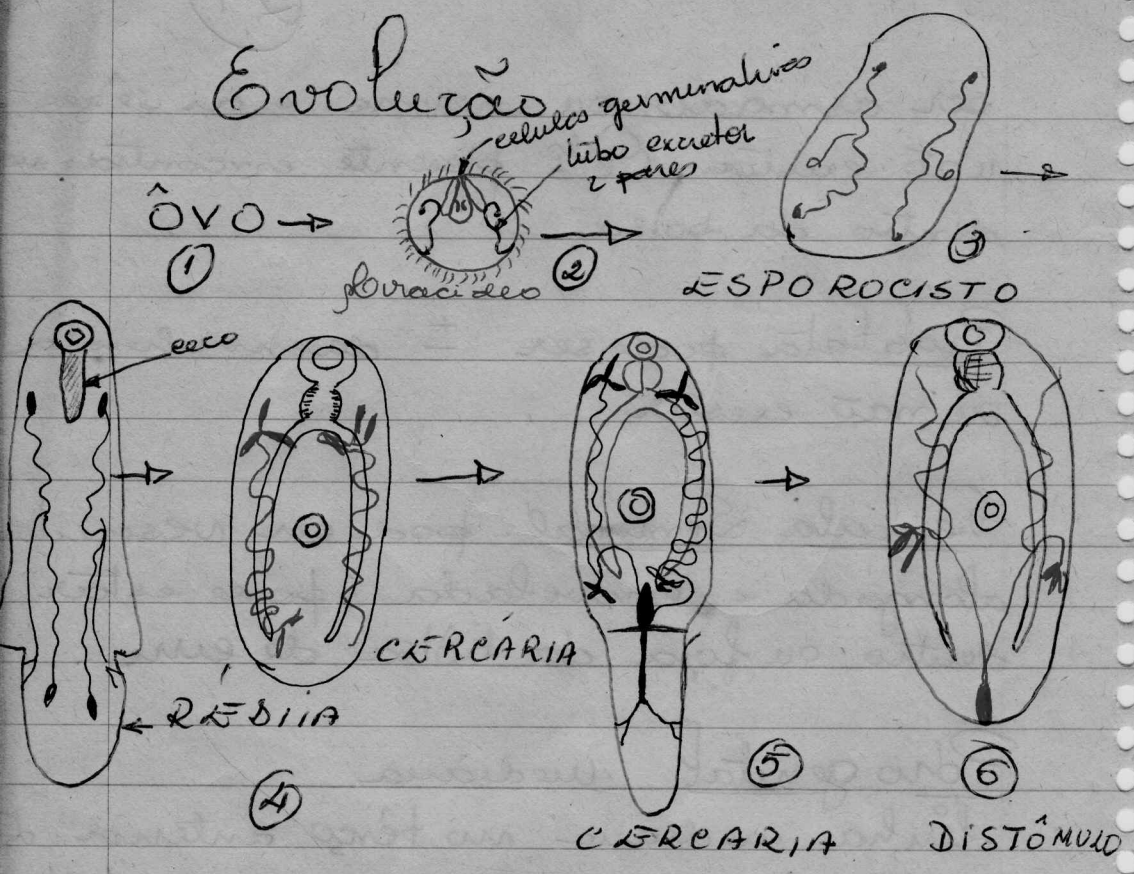 Evolução
células germinativas
tubo excretor
2 pares
ÔVO
1
2
3
Miracídeo
ESPOROCISTO
ceco
CERCÁRIA
RÉDIIA
4
5
6
CERCARIA
DISTÔMULO